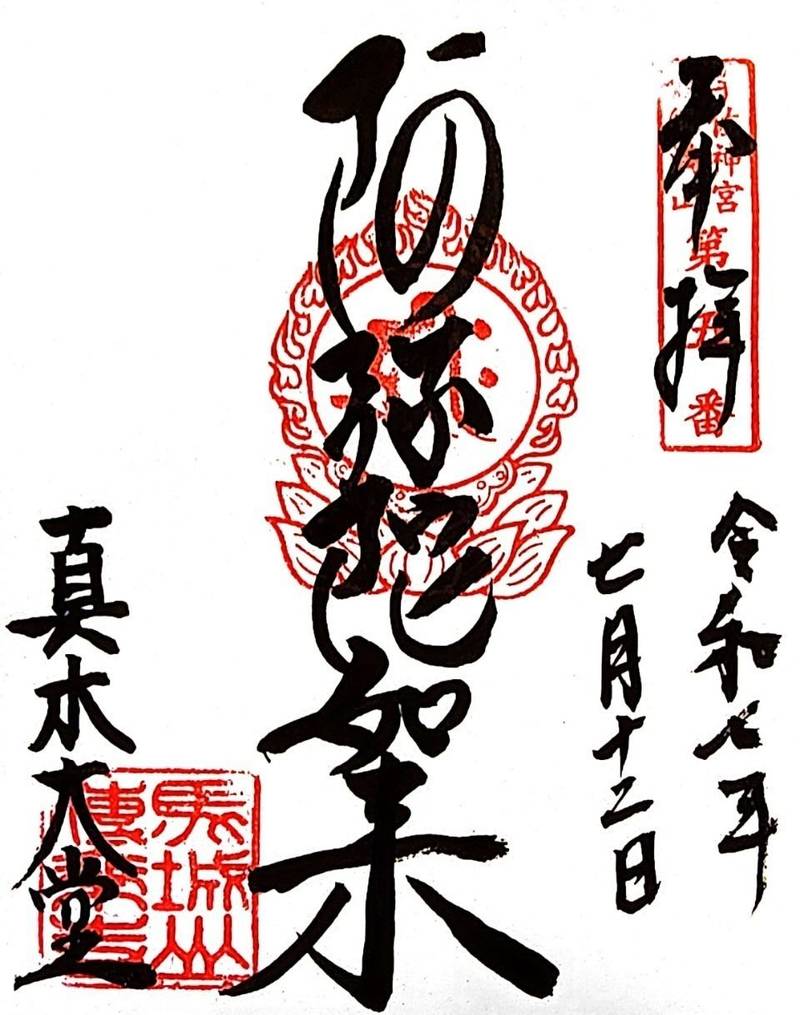 奉拝
神宮
第五番
令和七年
七月十二日
阿弥陀如来
馬城山
真木大堂